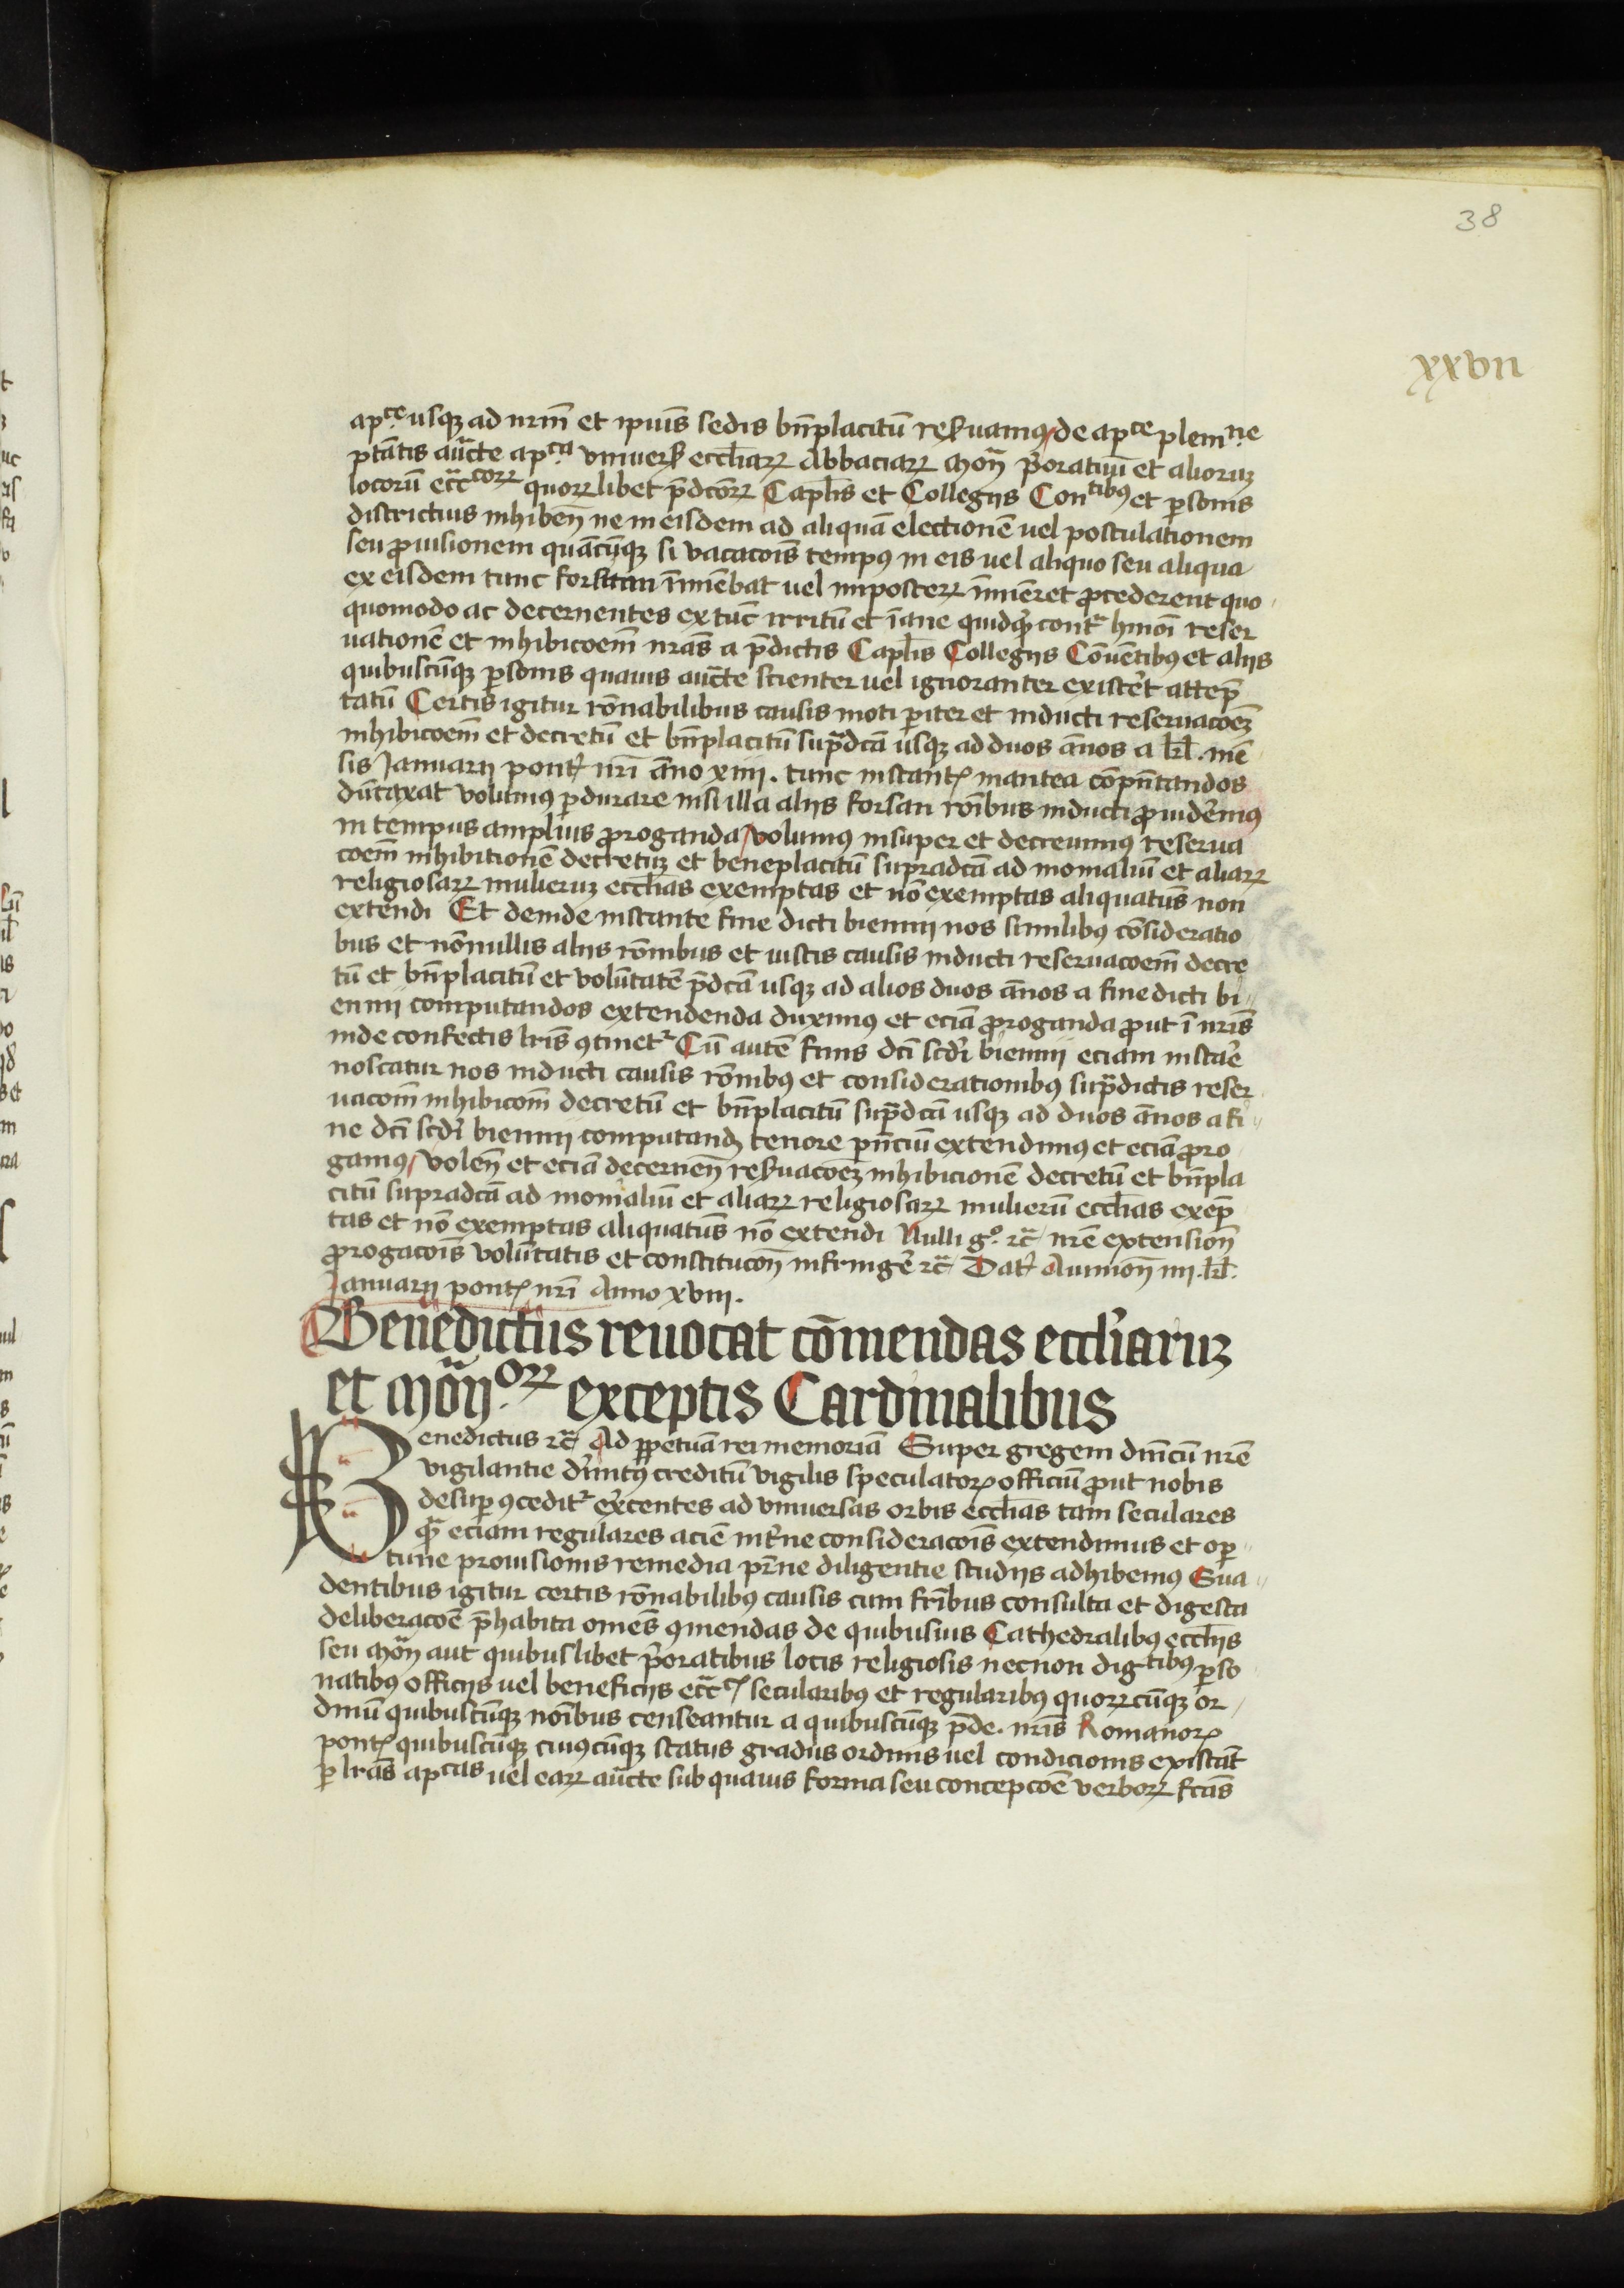 38
xxvii
apce. usqz ad nrm̄ et ipius sedis bn̄placitū resuamus de apce plenine
ptātis auc̄te apca. vniuers ecchiarꝝ Abbaciarꝝ Mon̄ p̄oratuū et alioruz
locorū ecc̄corꝝ quorꝝlibet p̄dcōrꝝ Caplīs et Collegijs Contibꝰ et ꝑsonis
districtius inhiben̄ ne in eisdem ad aliquā electionē uel postulationem
seu ꝓuisionem quācūqz si vacacōis tempꝰ in eis uel aliquo seu aliqua
ex eisdem tunc forsitan īminēbat uel imposterꝝ īminēret ꝓcederent quo
quomodo ac decernentes extūc irritū et īane quidqͥd contᵃ hmōi reser
uationē et inhibicoēm nrās a p̄dictis Caplīs Collegijs Cōuētibꝰ et alijs
quibuscūqz ꝑsonis quauis auc̄te scienter uel ignoranter existēt attēp̄
tatū Certis igitur rōnabilibus causis moti ꝑiter et inducti reseruacoēz
inhibicoēm et decretū et bn̄placitū sup̄dcā usqz ad duos ānos a kl. mē
sis Januarij pont̄ nrī āno xiiij. tunc instanti inantea cōpūtandos
dūtaxat volumꝰ ꝑdurare nisi illa alijs forsan rōibus inducti ꝓuidēmꝰ
in tempus amplius ꝓroganda volumꝰ insuper et decreuimꝰ reserua
coēm inhibitionē decretuz et beneplacitū supradcā ad monialiū et aliarꝝ
religiosarꝝ mulieruz ecchīas exemptas et nō exemptas aliquatus non
extendi Et deinde instante fine dicti biennij nos similibꝰ cōsideratio
bus et nōnullis alijs rōnibus et iustis causis inducti reseruacoēm decre
tū et bn̄placitū et volūtatē p̄dcā usqz ad alios duos ānos a fine dicti bi
ennij computandos extendenda duximꝰ et eciā ꝓroganda ꝓut ī nrīs
inde confectis lrīs ꝯtinetᷣ Cū autē finis dcī scdī biennij eciam instāe
noscatur nos inducti causis rōnibꝰ et considerationibꝰ sup̄dictis reser
uacōm inhibicōm decretū et bn̄placitū sup̄dcā usqz ad duos ānos a fi
ne dcī scdī biennij computand tenore pn̄ciū extendimꝰ et eciā ꝓro
gamꝰ volen̄ et eciā decernen̄ resuacoēz inhibicionē decretū et bn̄pla
citū supradcā ad monialiū et aliarꝝ religiosarꝝ mulierū ecchīas exēp̄
tas et nō exemptas aliquatus nō extendi Nulli gͦ. ꝛc̄ nrē extension̄
ꝓrogacōis volūtatis et constitucōn infringē ꝛc̄ Dat̄ Auinion̄ iiij. kl.
Januarij pont nrī Anno xviij.
Benedictus reuocat cōmendas ecclīaruz
et Mon̄.orꝝ exceptis Cardinalibus
Benedictus ꝛc̄ Ad ꝑpetuā rei memoriā Super gregem dnīcū nrē
vigilantie diuinitꝰ creditū vigilis speculatorꝭ officiū ꝓut nobis
desuꝑ ꝯceditᷣ exercentes ad vniuersas orbis ecchīas tam seculares
qᵃ eciam regulares aciē int̄ne consideracōis extendimus et opꝑ
tune prouisionis remedia pat̄ne diligentie studijs adhibemꝰ Sua
dentibus igitur certis rōnabilibꝰ causis cum frībus consulta et digesta
deliberacoē p̄habita omēs ꝯmendas de quibusuis Cathedralibꝰ ecchijs
seu Mon̄ aut quibuslibet p̄oratibus locis religiosis necnon digtibꝰ ꝑso
natibꝰ officijs uel beneficijs ecc̄cis secularibꝰ et regularibꝰ quorꝝcūqz or
dinū quibuscūqz noībus censeantur a quibuscūqz p̄de. nrīs Romanorꝭ
pont quibuscūqz cuiꝰcūqz status gradus ordinis uel condicionis existāt
ꝑ lrās apcas uel earꝝ auc̄te sub quauis forma seu concepcoē verborꝝ fcās